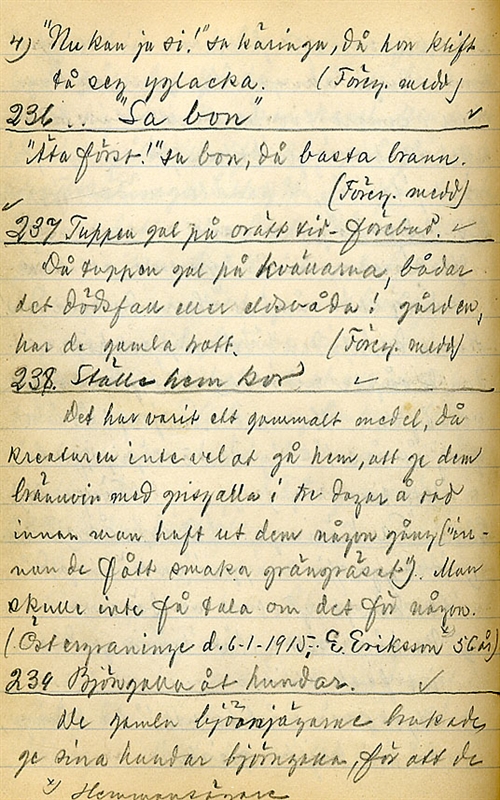 4) "Nu kan ja si!" sa käringa, då hon klift
tå sez yzlacka. (Förey. medd)
236. "Sa bon"
"Äta först!" sa bon, då basta brann.
(Förey. medd)
237 Tuppen gal på orätt tid - förebud.
Då tuppen gal på kvällarna, bådar
det dödsfall eller eldsvåda i gården,
har de gamla trott. (Förey. medd)
238. Ställe hem kor
Det har varit ett gammalt medel, då
kreaturen inte vel at gå hem, att ge dem
brännvin med grisgalla i tre dagar å råd
innan man haft ut dem någon gång ("in-
nan de fått smaka gröngräset"). Man
skulle inte få tala om det för någon.
(Östergraninge d. 6-1-1915, E. Eriksson x) 56 år)
239 Björngalla åt hundar.
De gamla björnjägarne brukade
ge sina hundar björngalla, för att de
x) Hemmansägare